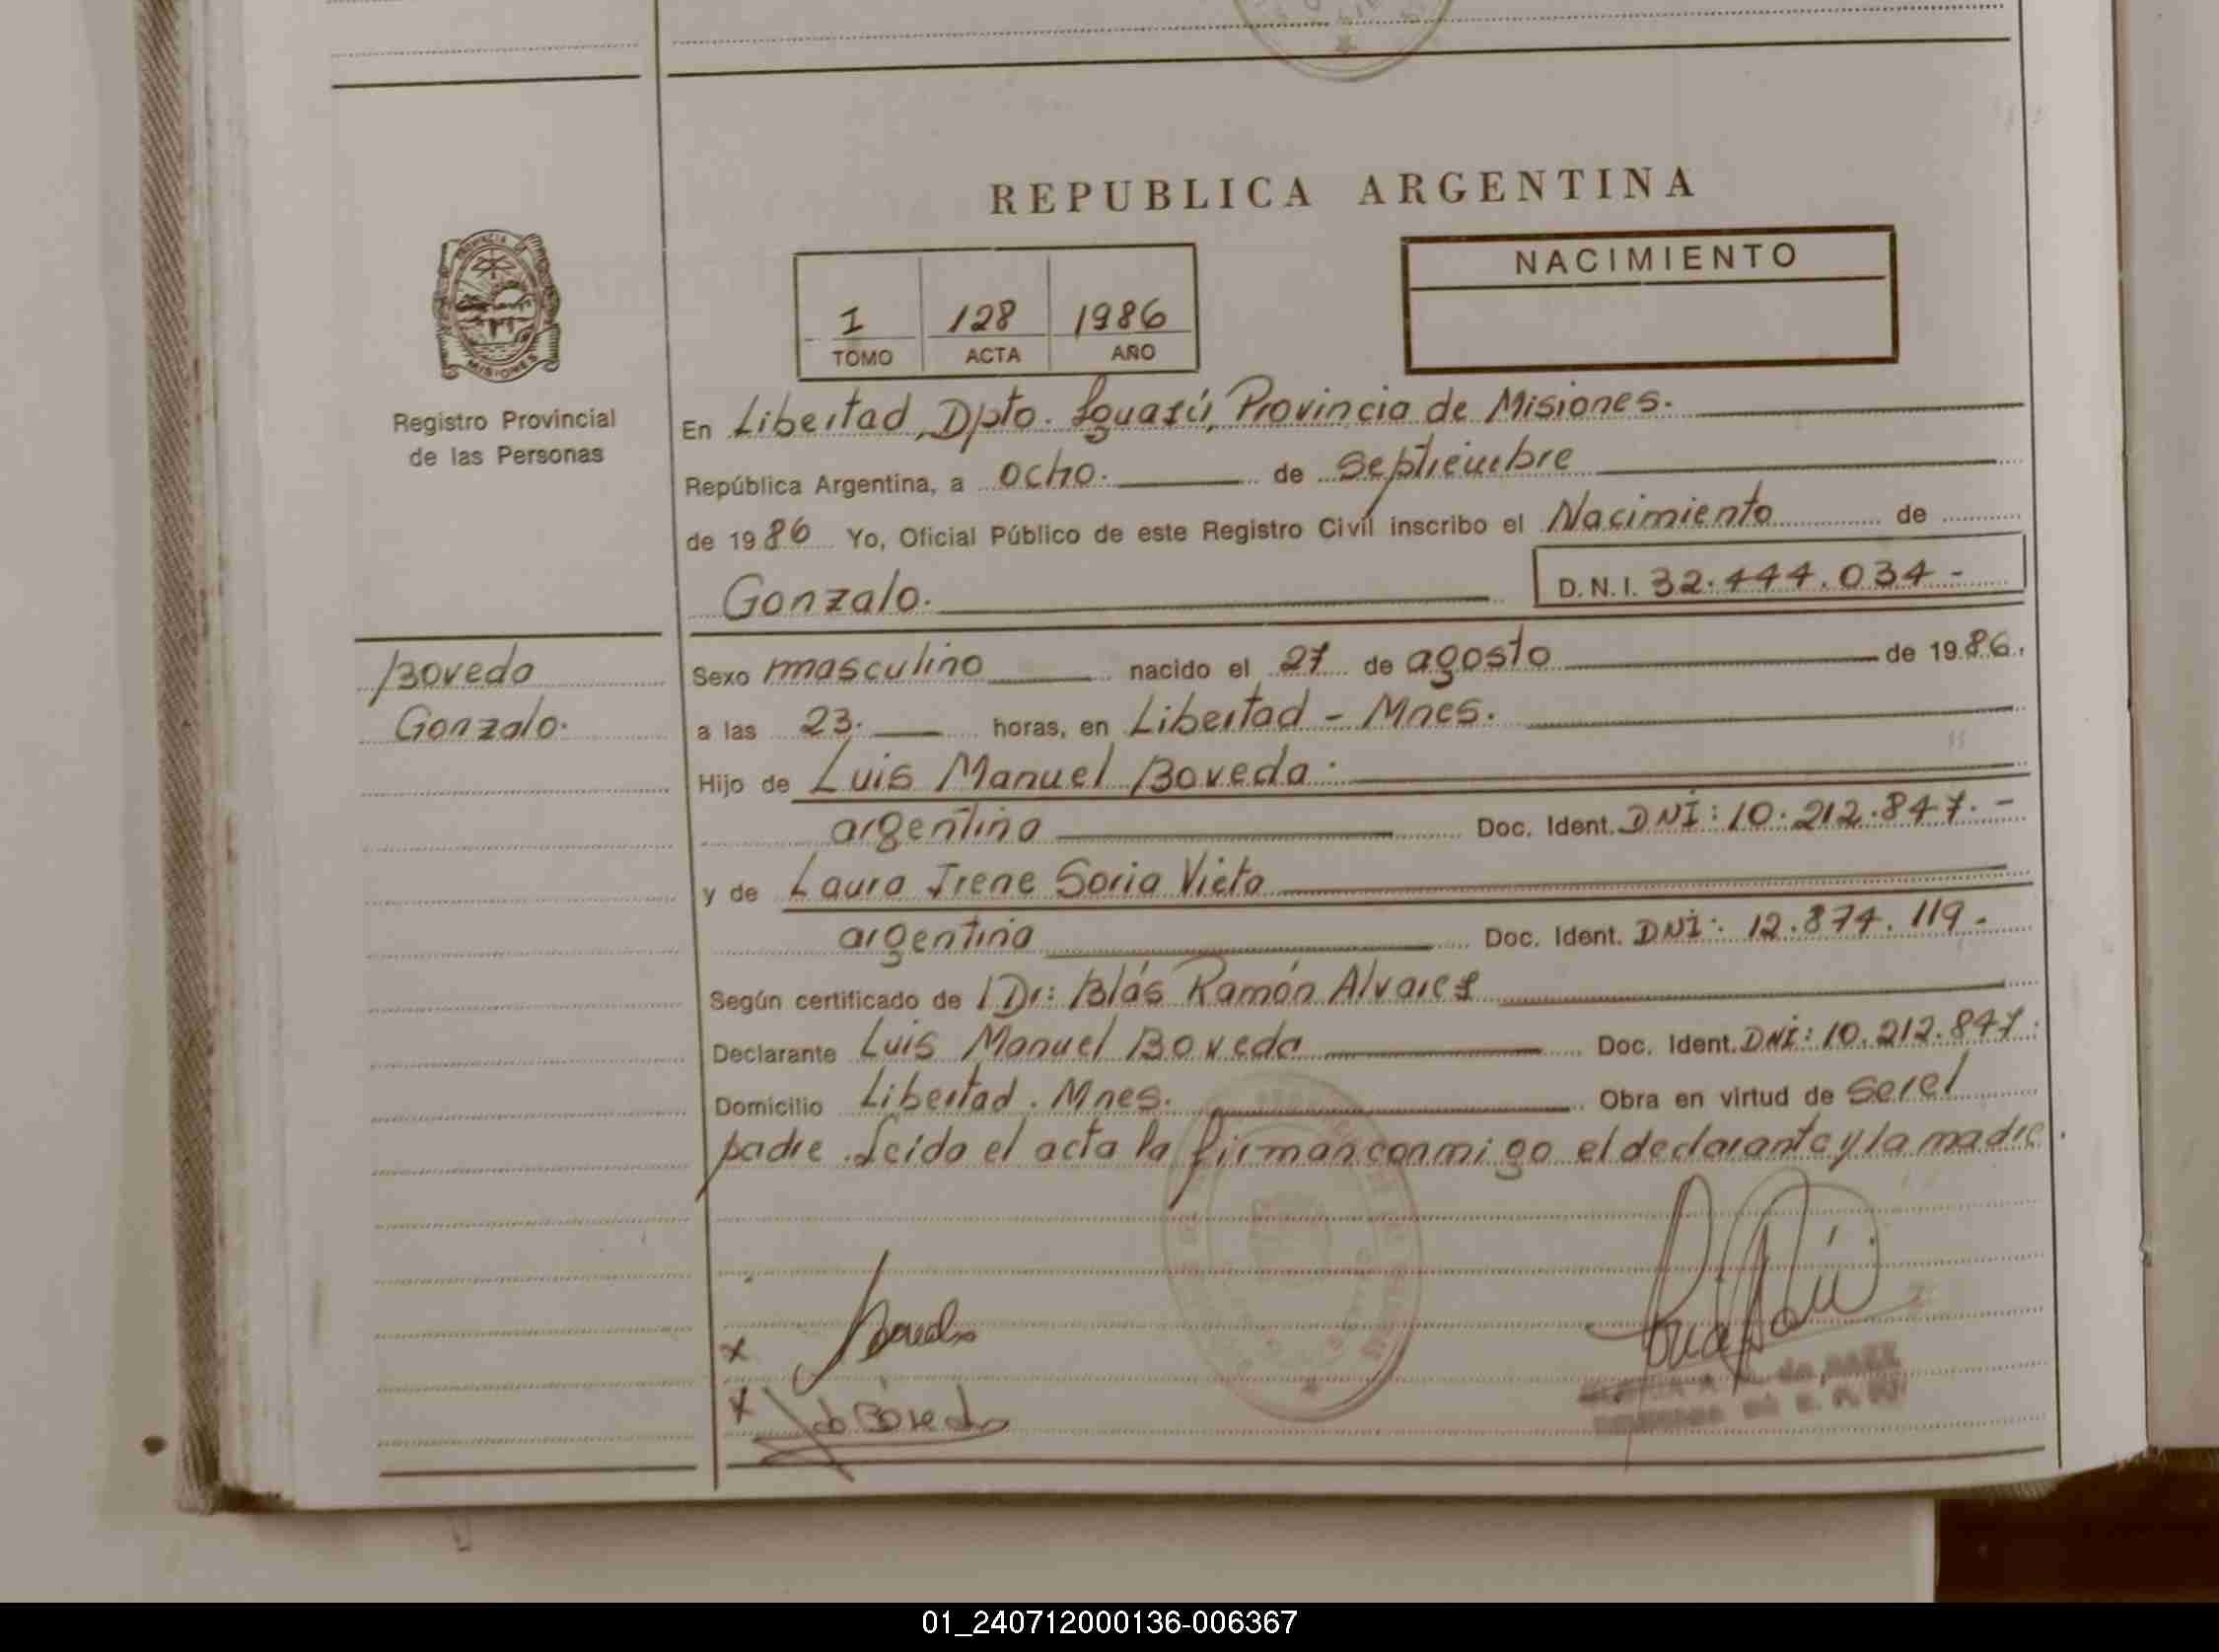 REPUBLICA ARGENTINA
NACIMIENTO
1 128 1986
TOMO ACTA AÑO
PROVINCIA DE
MISIONES
Registro Provincial
de las Personas
En Libertad, Dpto. Iguazú, Provincia de Misiones.
República Argentina, a ocho. de septiembre
de 1986 Yo, Oficial Público de este Registro Civil inscribo el Nacimiento de
Gonzalo. D.N.I. 32.444.034-
Boveda
Gonzalo.
Sexo masculino nacido el 27 de agosto de 1986.
a las 23. horas, en Libertad - Mnes.
Hijo de Luis Manuel Boveda.
argentino Doc. Ident. DNI: 10.212.847.-
y de Laura Irene Soria Vieta
argentina Doc. Ident. DNI: 12.874.119-
Según certificado de Dr: Blás Ramón Alvarez
Declarante Luis Manuel Boveda Doc. Ident. DNI: 10.212.847.
Domicilio Libertad. Mnes. Obra en virtud de ser el
padre. Leida el acta la firman conmigo el declarante y la madre.
x Boveda
x de Boveda
01_240712000136-006367